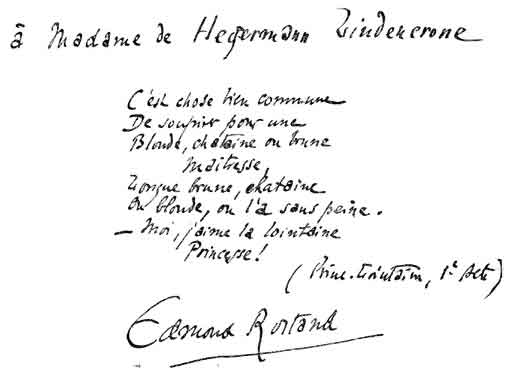 à Madame de Hegermann Lindencrone
C'est chose bien commune
De soupirer pour une
Blonde, chataine ou brune
Maitresse,
Lorsque brune, chataine
Ou blonde, on l'a sans peine.
— Moi, j'aime la lointaine
Princesse!
(Princ. Lointaine, 1er Acte)
Edmond Rostand